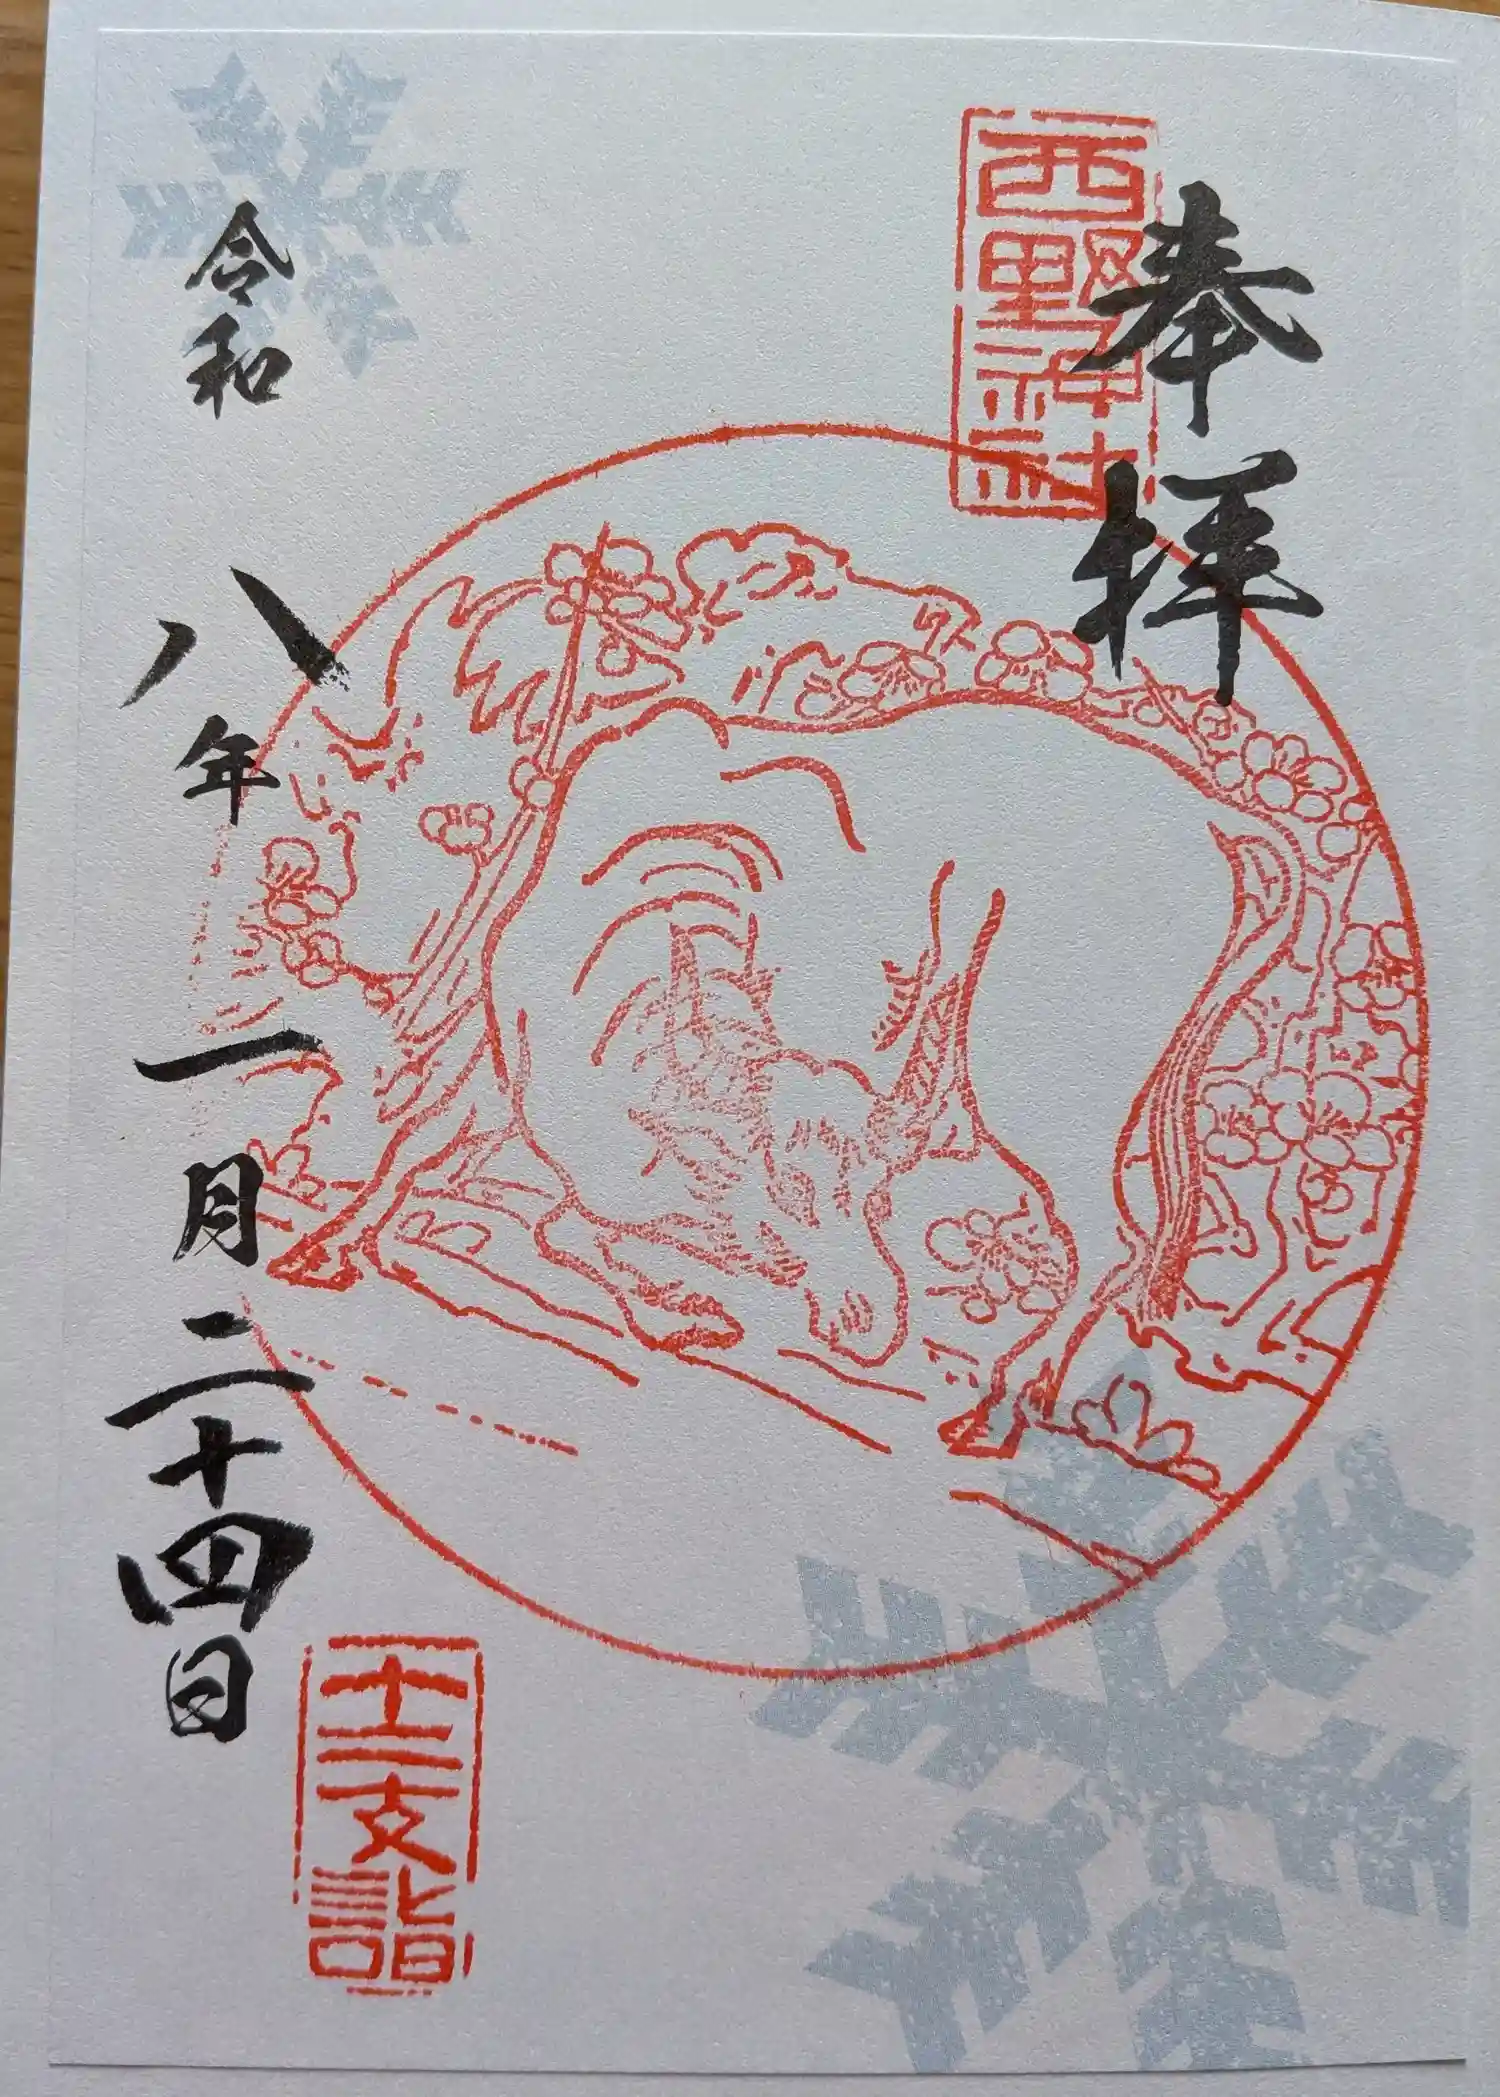 奉拝
西野神社
令和八年一月二十四日
十二支詣